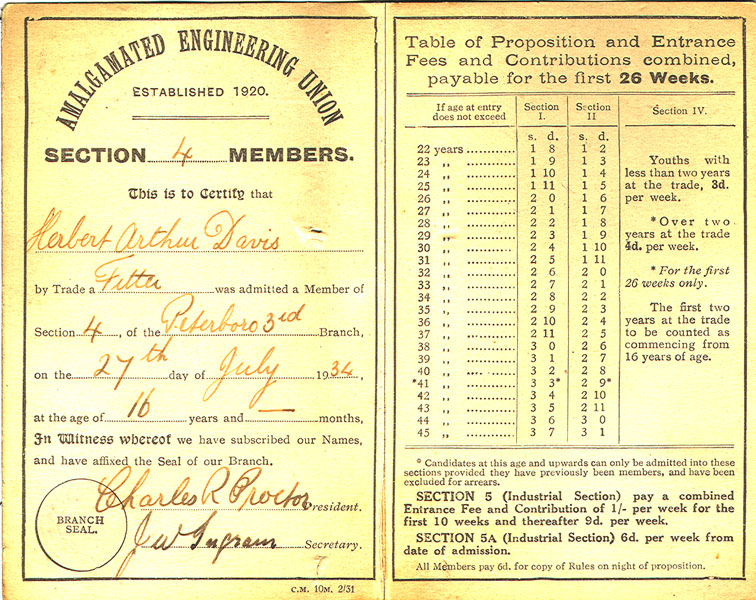 AMALGAMATED ENGINEERING UNION
ESTABLISHED 1920.
SECTION 4 MEMBERS.
This is to Certify that
Herbert Arthur Davis
by Trade a Fitter was admitted a Member of
Section 4, of the Peterboro 3rd Branch,
on the 27th day of July 1934,
at the age of 16 years and — months,
In Witness whereof we have subscribed our Names,
and have affixed the Seal of our Branch.
Charles R Proctor President.
BRANCH SEAL.
J W Ingram Secretary.
C.M. 10M. 2/31
Table of Proposition and Entrance
Fees and Contributions combined,
payable for the first 26 Weeks.
If age at entry does not exceed Section I. Section II Section IV.
s. d. s. d.
22 years 1 8 1 2
23 " 1 9 1 3
24 " 1 10 1 4
25 " 1 11 1 5
26 " 2 0 1 6
27 " 2 1 1 7
28 " 2 2 1 8
29 " 2 3 1 9
30 " 2 4 1 10
31 " 2 5 1 11
32 " 2 6 2 0
33 " 2 7 2 1
34 " 2 8 2 2
35 " 2 9 2 3
36 " 2 10 2 4
37 " 2 11 2 5
38 " 3 0 2 6
39 " 3 1 2 7
40 " 3 2 2 8
*41 " 3 3* 2 9*
42 " 3 4 2 10
43 " 3 5 2 11
44 " 3 6 3 0
45 " 3 7 3 1
Youths with
less than two years
at the trade, 3d.
per week.
*Over two
years at the trade
4d. per week.
*For the first
26 weeks only.
The first two
years at the trade
to be counted as
commencing from
16 years of age.
* Candidates at this age and upwards can only be admitted into these
sections provided they have previously been members, and have been
excluded for arrears.
SECTION 5 (Industrial Section) pay a combined
Entrance Fee and Contribution of 1/- per week for the
first 10 weeks and thereafter 9d. per week.
SECTION 5A (Industrial Section) 6d. per week from
date of admission.
All Members pay 6d. for copy of Rules on night of proposition.